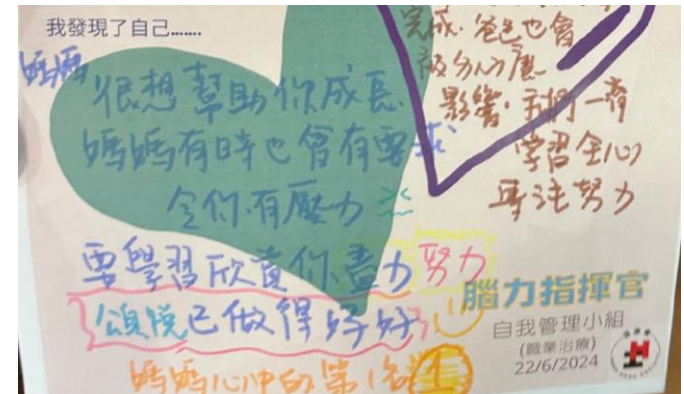 我發現了自己.......
媽媽
很想幫助你成長
媽媽有時也會有要求
令你有壓力
要學習欣賞你盡力 努力
頌悅已做得好好
媽媽心中的第1名
完成. 爸爸也會
被分心魔
影響. 我們一齊
學習全心
專注努力
腦力指揮官
自我管理小組
(職業治療)
22/6/2024